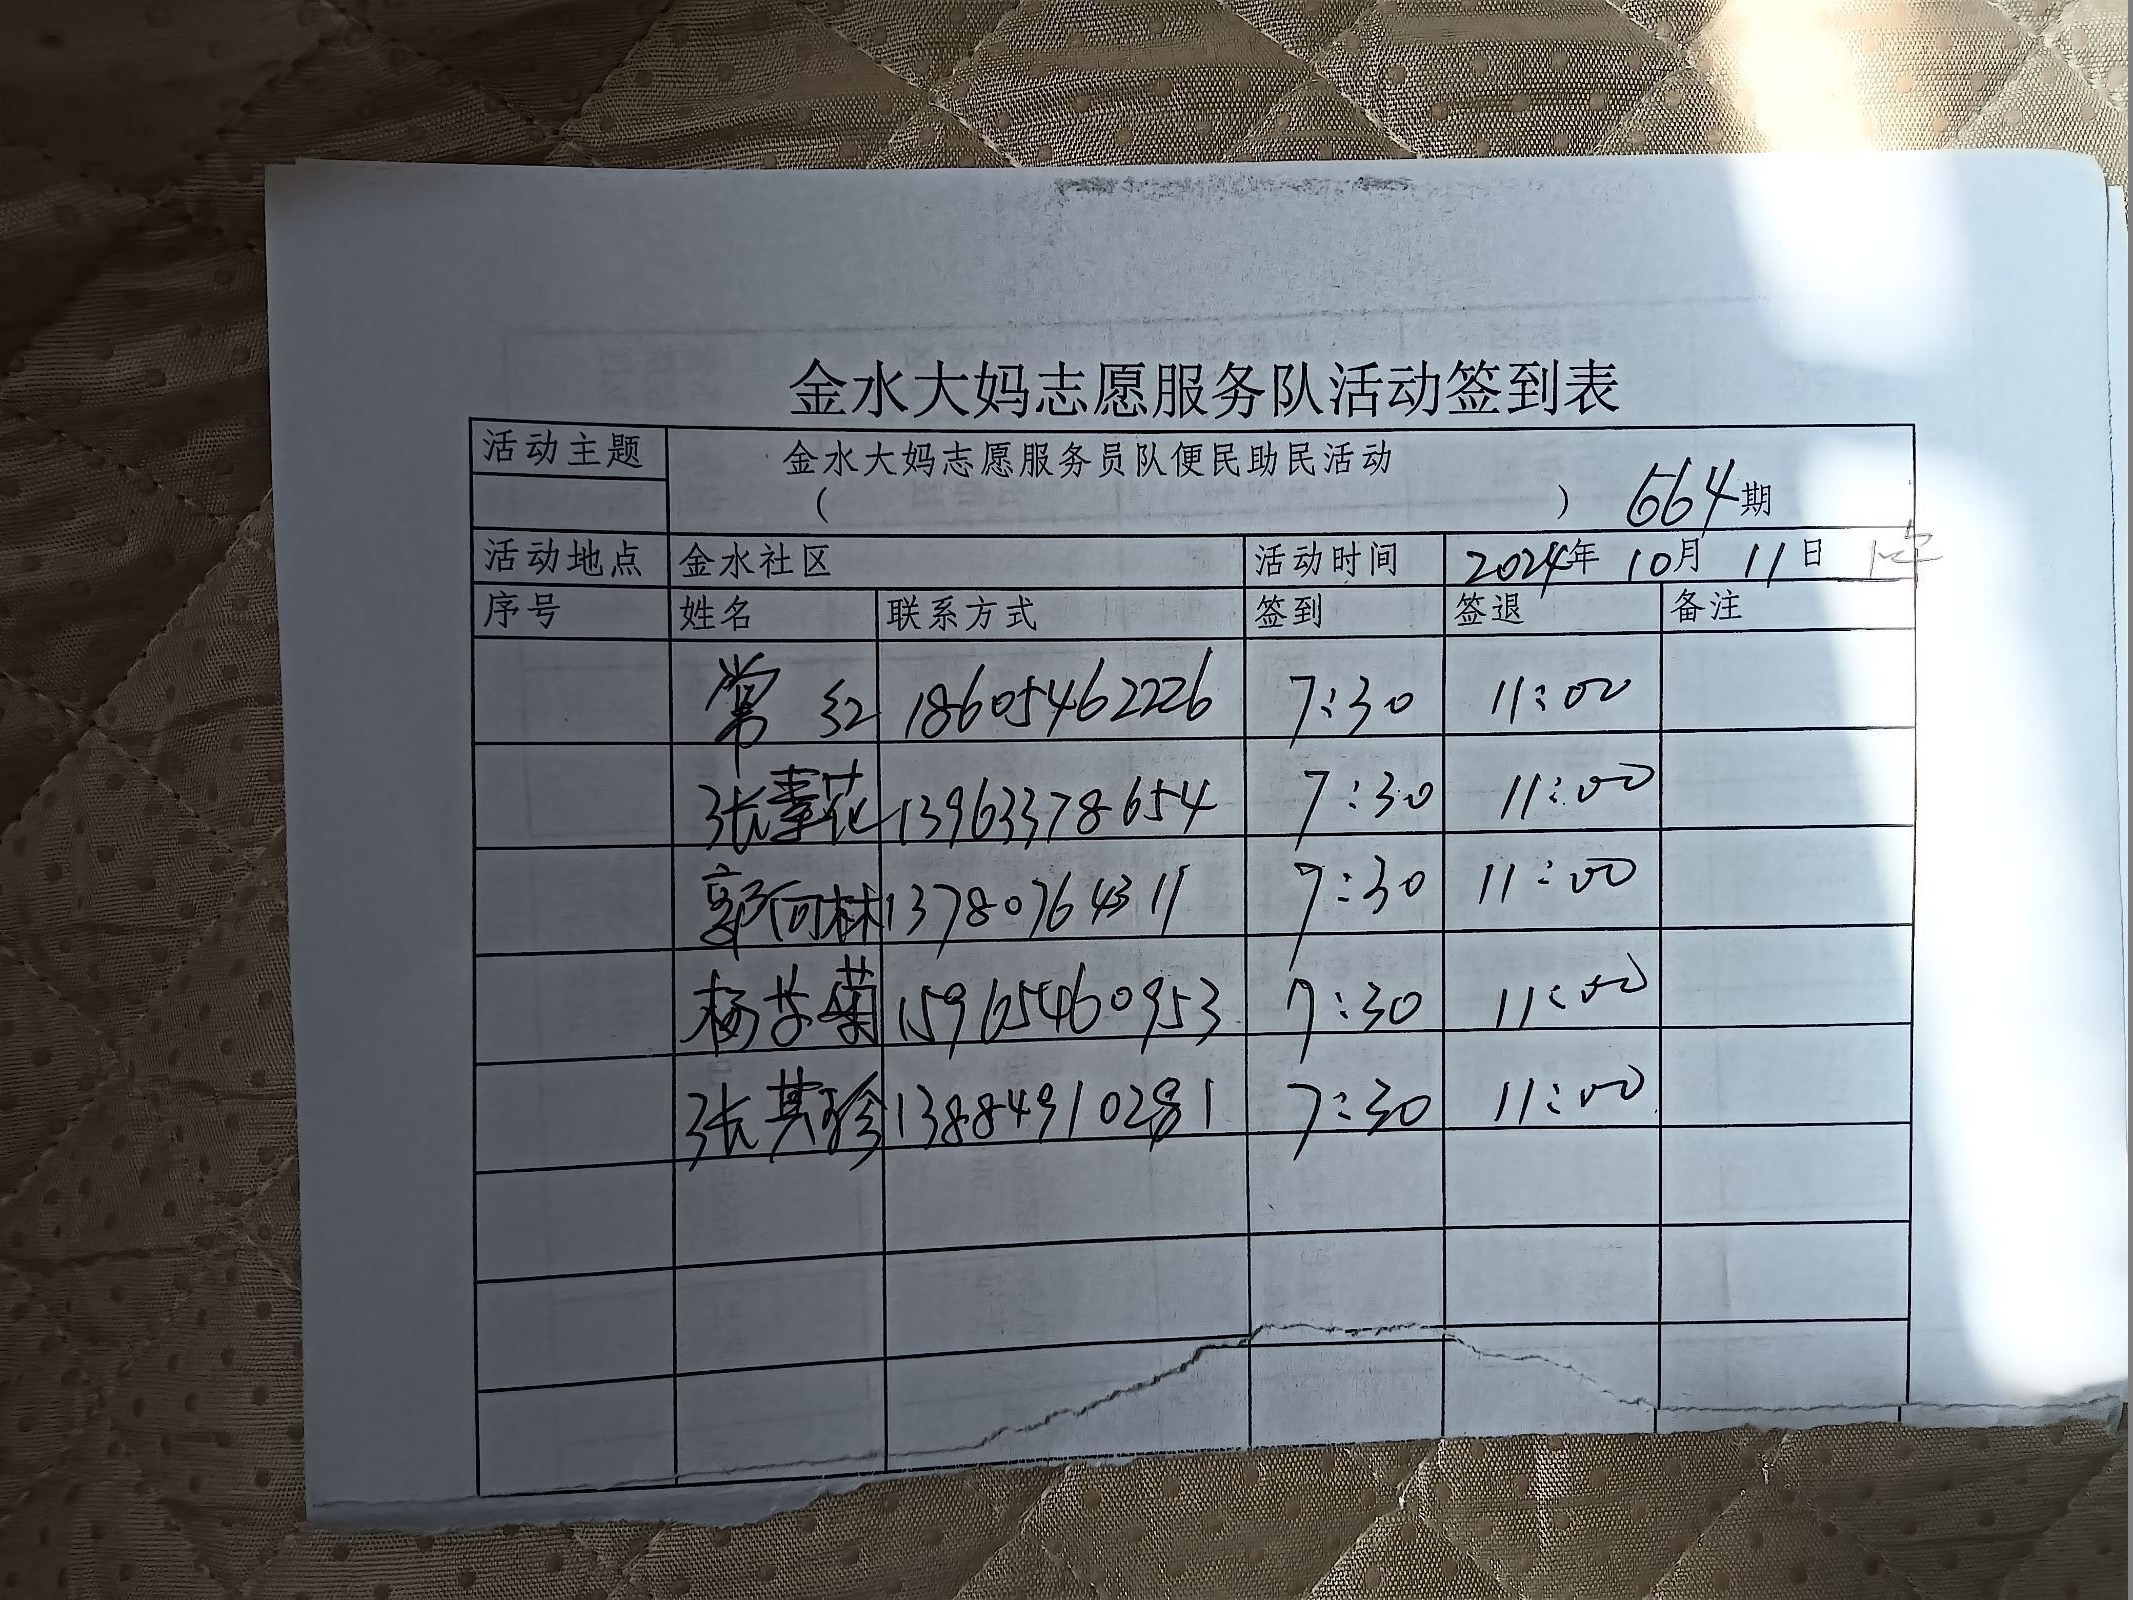 金水大妈志愿服务队活动签到表
活动主题 金水大妈志愿服务员队便民助民活动
( ) 664期
活动地点 金水社区 活动时间 2024年 10月 11日
序号 姓名 联系方式 签到 签退 备注
常红 18605462226 7:30 11:00
张春花 13963378654 7:30 11:00
郭向林 13780764311 7:30 11:00
杨学菊 15965460953 7:30 11:00
张其珍 13884910281 7:30 11:00